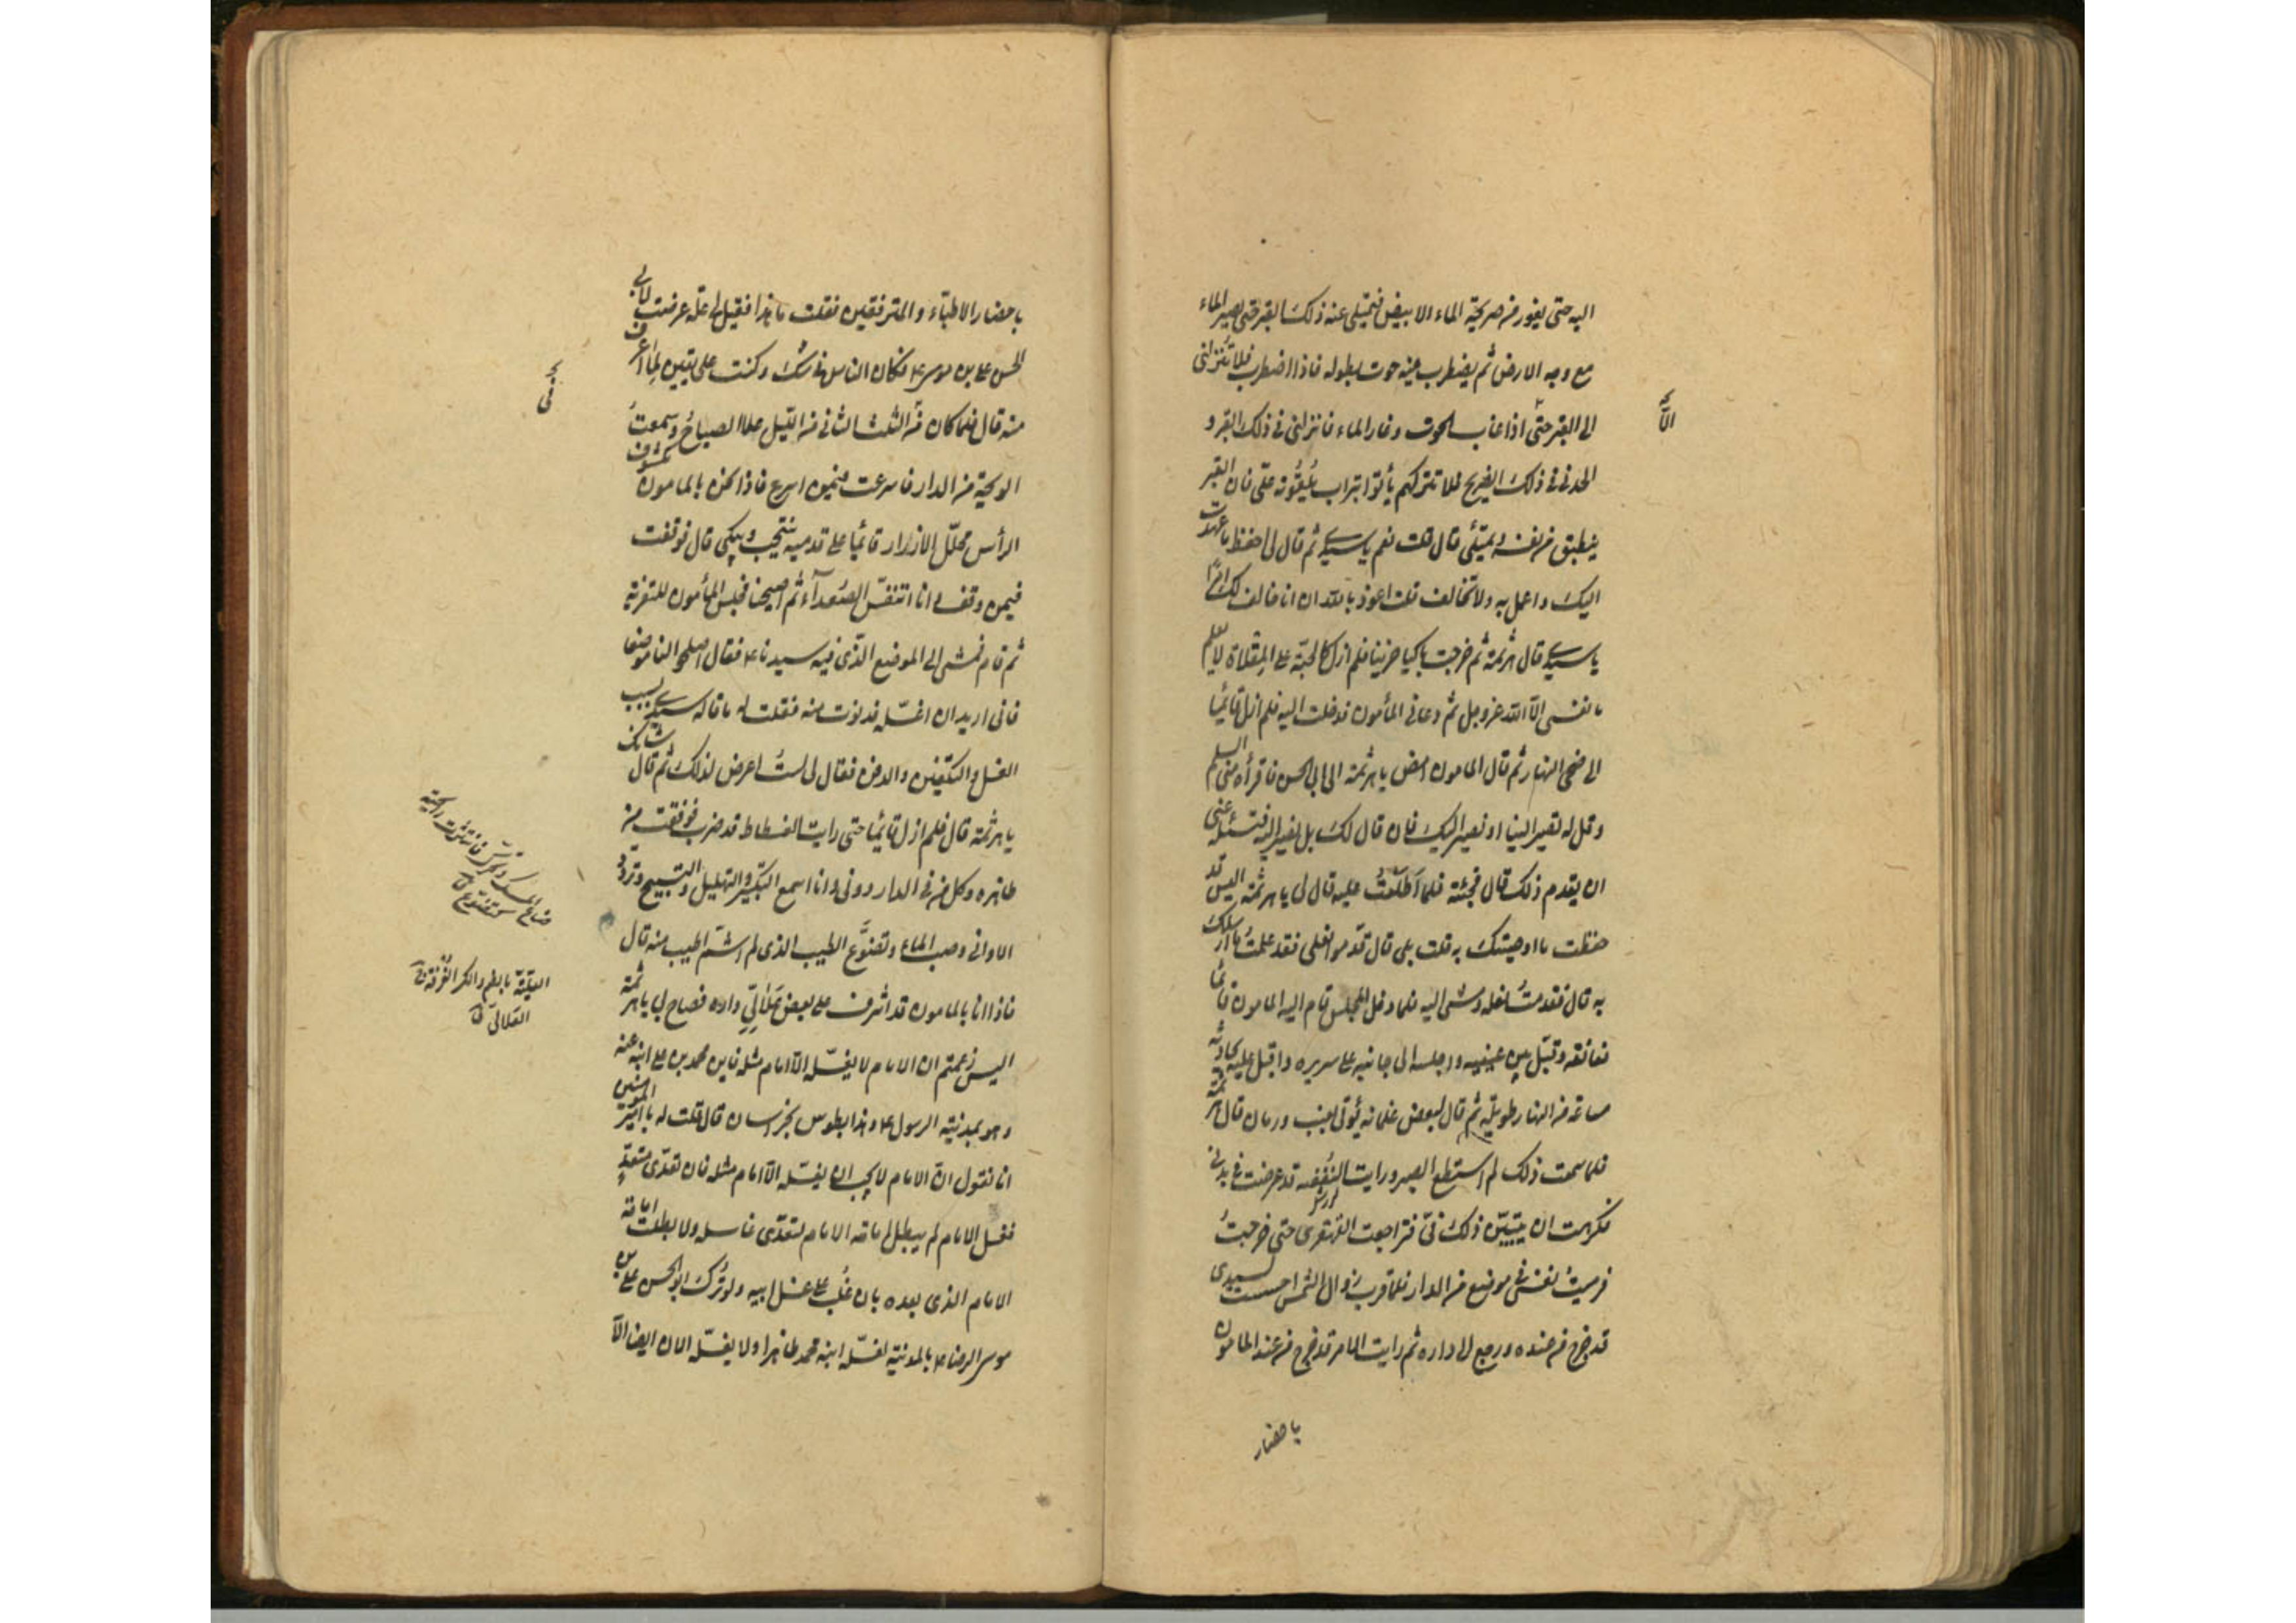 اليه حتى يفور من ضريحة الماء الابيض فيمتلى عنه ذلك القبر حتى يصير الماء
مع وجه الارض ثم يضطرب فيه حوت بطوله فاذا اضطرب فلا تنزلنى
الى القبر حتى اذا غاب الحوت وغار الماء فانزلنى فى ذلك القبر و
الحدنى فى ذلك الضريح فلا تتركهم يأتوا بتراب يلقونه علىّ فان القبر
ينطبق من نفسه ويمتلى قال قلت نعم يا سيدى ثم قال لى احفظ ما عهدت
اليك واعمل به ولا تخالف قلت اعوذ بالله ان اخالف لك امرًا
يا سيدى قال هرثمة ثم خرجت باكيا حزينا فلم ازل كالحبّة على المقلاة لا يعلم
ما نفسى الّا الله عز وجل ثم دعانى المأمون فدخلت اليه فلم ازل قائما
الى ضحى النهار ثم قال المامون امض يا هرثمة الى ابى الحسن فاقرأه منى السلم
وقل له تصير الينا او نصير اليك فان قال لك بل نصير اليه فتسئله عنى
ان يقدم ذلك قال فجئته فلما اطلعتُ عليه قال لى يا هرثمة اليس قد
حفظت ما اوصيتك به قلت بلى قال قدّموا نعلى فقد علمتُ ما ارسلك
به قال فقدمتُ نعله ومشى اليه فلما دخل المجلس قام اليه المامون قائما
فعانقه وقبّل بين عينيه واجلسه الى جانبه على سريره واقبل عليه يحادثه
ساعة من النهار طويلة ثم قال لبعض غلمانه يؤتى بعنب ورمان قال هرثمة
فلما سمعت ذلك لم استطع الصبر ورايت النفضه قد عرضت فى بدنى
فكرهت ان يتبيّن ذلك فىّ فتراجعت القهقرى حتى خرجتُ
فرميتُ نفسى فى موضع من الدار فلما قرب زوال الشمس احسست بسيدى
قد خرج من عنده ورجع الى داره ثم رايت الامر قد خرج من عند المامون
باحضار
الّا
باحضار الاطبّاء والمترفقين فقلت ما هذا فقيل لى علّة عرضت لابى
الحسن على بن موسى ع فكان الناس فى شك وكنت على يقين لما اعرف
منه قال فلما كان من الثلث الثانى من الليل علا الصياح وسمعتُ
الوجبة من الدار فاسرعت فيمن اسرع فاذا نحن بالمامون مكشوف
الرأس محلّل الازرار قائما على قدميه ينتحب ويبكى قال فوقفت
فيمن وقف وانا اتنفّس الصعدآء ثم اصبحنا فجلس المأمون للتعزية
ثم قام فمشى الى الموضع الذى فيه سيدنا ع فقال اصلحوا لنا موضعا
فانى اريد ان اغسّله فدنوت منه فقلت له ما قاله سيدى بسبب
الغسل والتكفين والدفن فقال لى لستُ اعرض لذلك ثم قال شانك
يا هرثمة قال فلم ازل قائما حتى رايت الفسطاط قد ضرب فوقفت من
ظاهره وكل من فى الدار دونى وانا اسمع التكبير والتهليل والتسبيح وتردد
الاوانى وصب الماء وتضوّع الطيب الذى لم اشمّ اطيب منه قال
فاذا انا بالمامون قد اشرف على بعض علالىّ داره فصاح لى يا هرثمة
اليس زعمتم ان الامام لا يغسّله الّا امام مثله فاين محمد بن على ابنه عنه
وهو بمدينة الرسول ع وهذا بطوس بخراسان قال قلت له يا امير المؤمنين
انا نقول انّ الامام لا يجب ان يغسّله الّا امام مثله فان تعدّى متعدٍّ
فغسل الامام لم يبطل امامة الامام لتعدّى غاسله ولا بطلت امامة
الامام الذى بعده بان غُلب على غسل ابيه ولو تُرك ابو الحسن على بن
موسى الرضا ع بالمدينة لغسّله ابنه محمد ظاهرا ولا يغسّله الان ايضا الّا
ضاع المسك تحرك فانتشرت رايحته
كتضوّع ق
العلّيّة بالضم والكسر الغرفة ج
العلالىّ ق